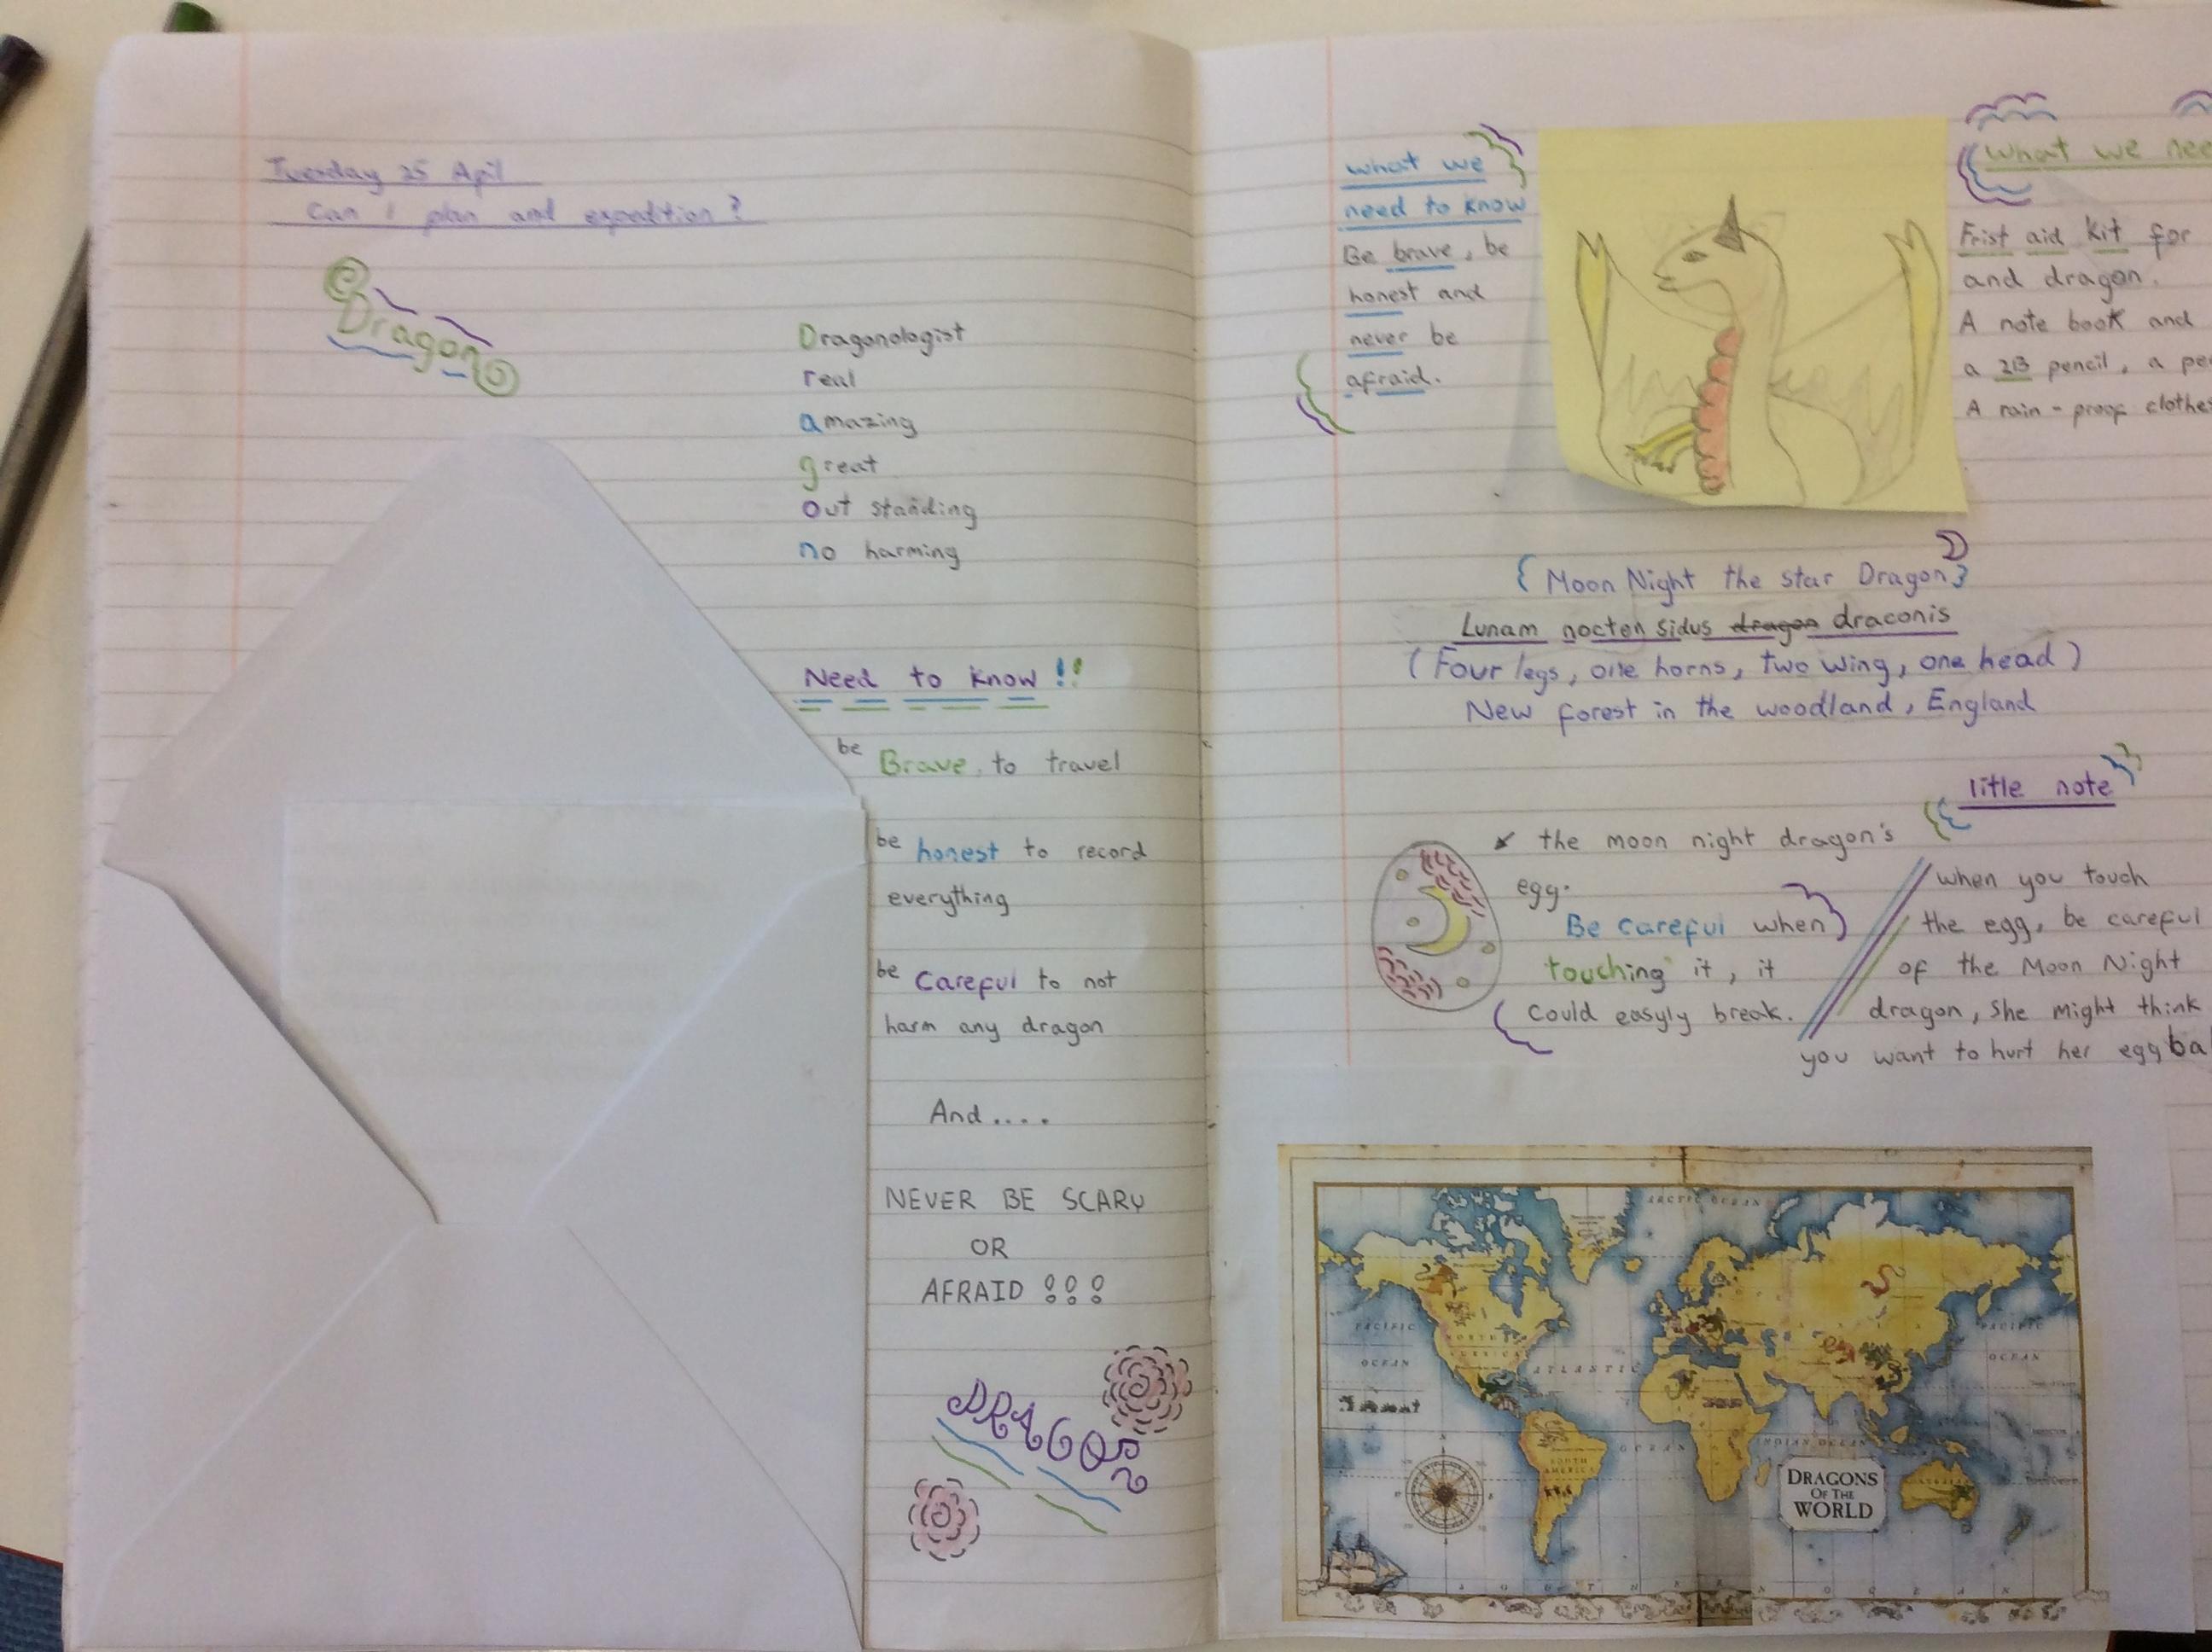 Tuesday 25 April
Can I plan and expedition?
Dragon
Dragonologist
real
amazing
great
out standing
no harming
Need to know !!
be Brave to travel
be honest to record
everything
be Careful to not
harm any dragon
And....
NEVER BE SCARY
OR
AFRAID !!!
DRAGON
what we
need to know
Be brave, be
honest and
never be
afraid.
What we nee
Frist aid kit for
and dragon.
A note book and
a 2B pencil, a pe
A rain-proof clothes
{Moon Night the star Dragon}
Lunam nocten sidus dragon draconis
(Four legs, one horns, two wing, one head)
New forest in the woodland, England
the moon night dragon's
egg.
Be careful when
touching it, it
could easyly break.
litle note
when you touch
the egg, be careful
of the Moon Night
dragon, she might think
you want to hurt her egg ba
ARCTIC OCEAN
PACIFIC
OCEAN
NORTH
AMERICA
ATLANTIC
OCEAN
SOUTH
AMERICA
INDIAN OCEAN
PACIFIC
OCEAN
DRAGONS
OF THE
WORLD